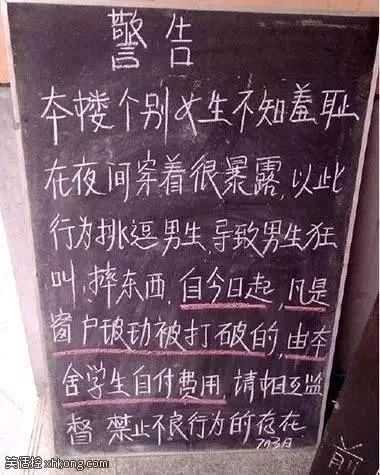 警告
本楼个别女生不知羞耻
在夜间穿着很暴露,以此
行为挑逗男生,导致男生狂
叫,摔东西,自今日起,凡是
窗户玻璃被打破的,由本
舍学生自付费用,请相互监
督 禁止不良行为的存在
前
笑话控 xhkong.com